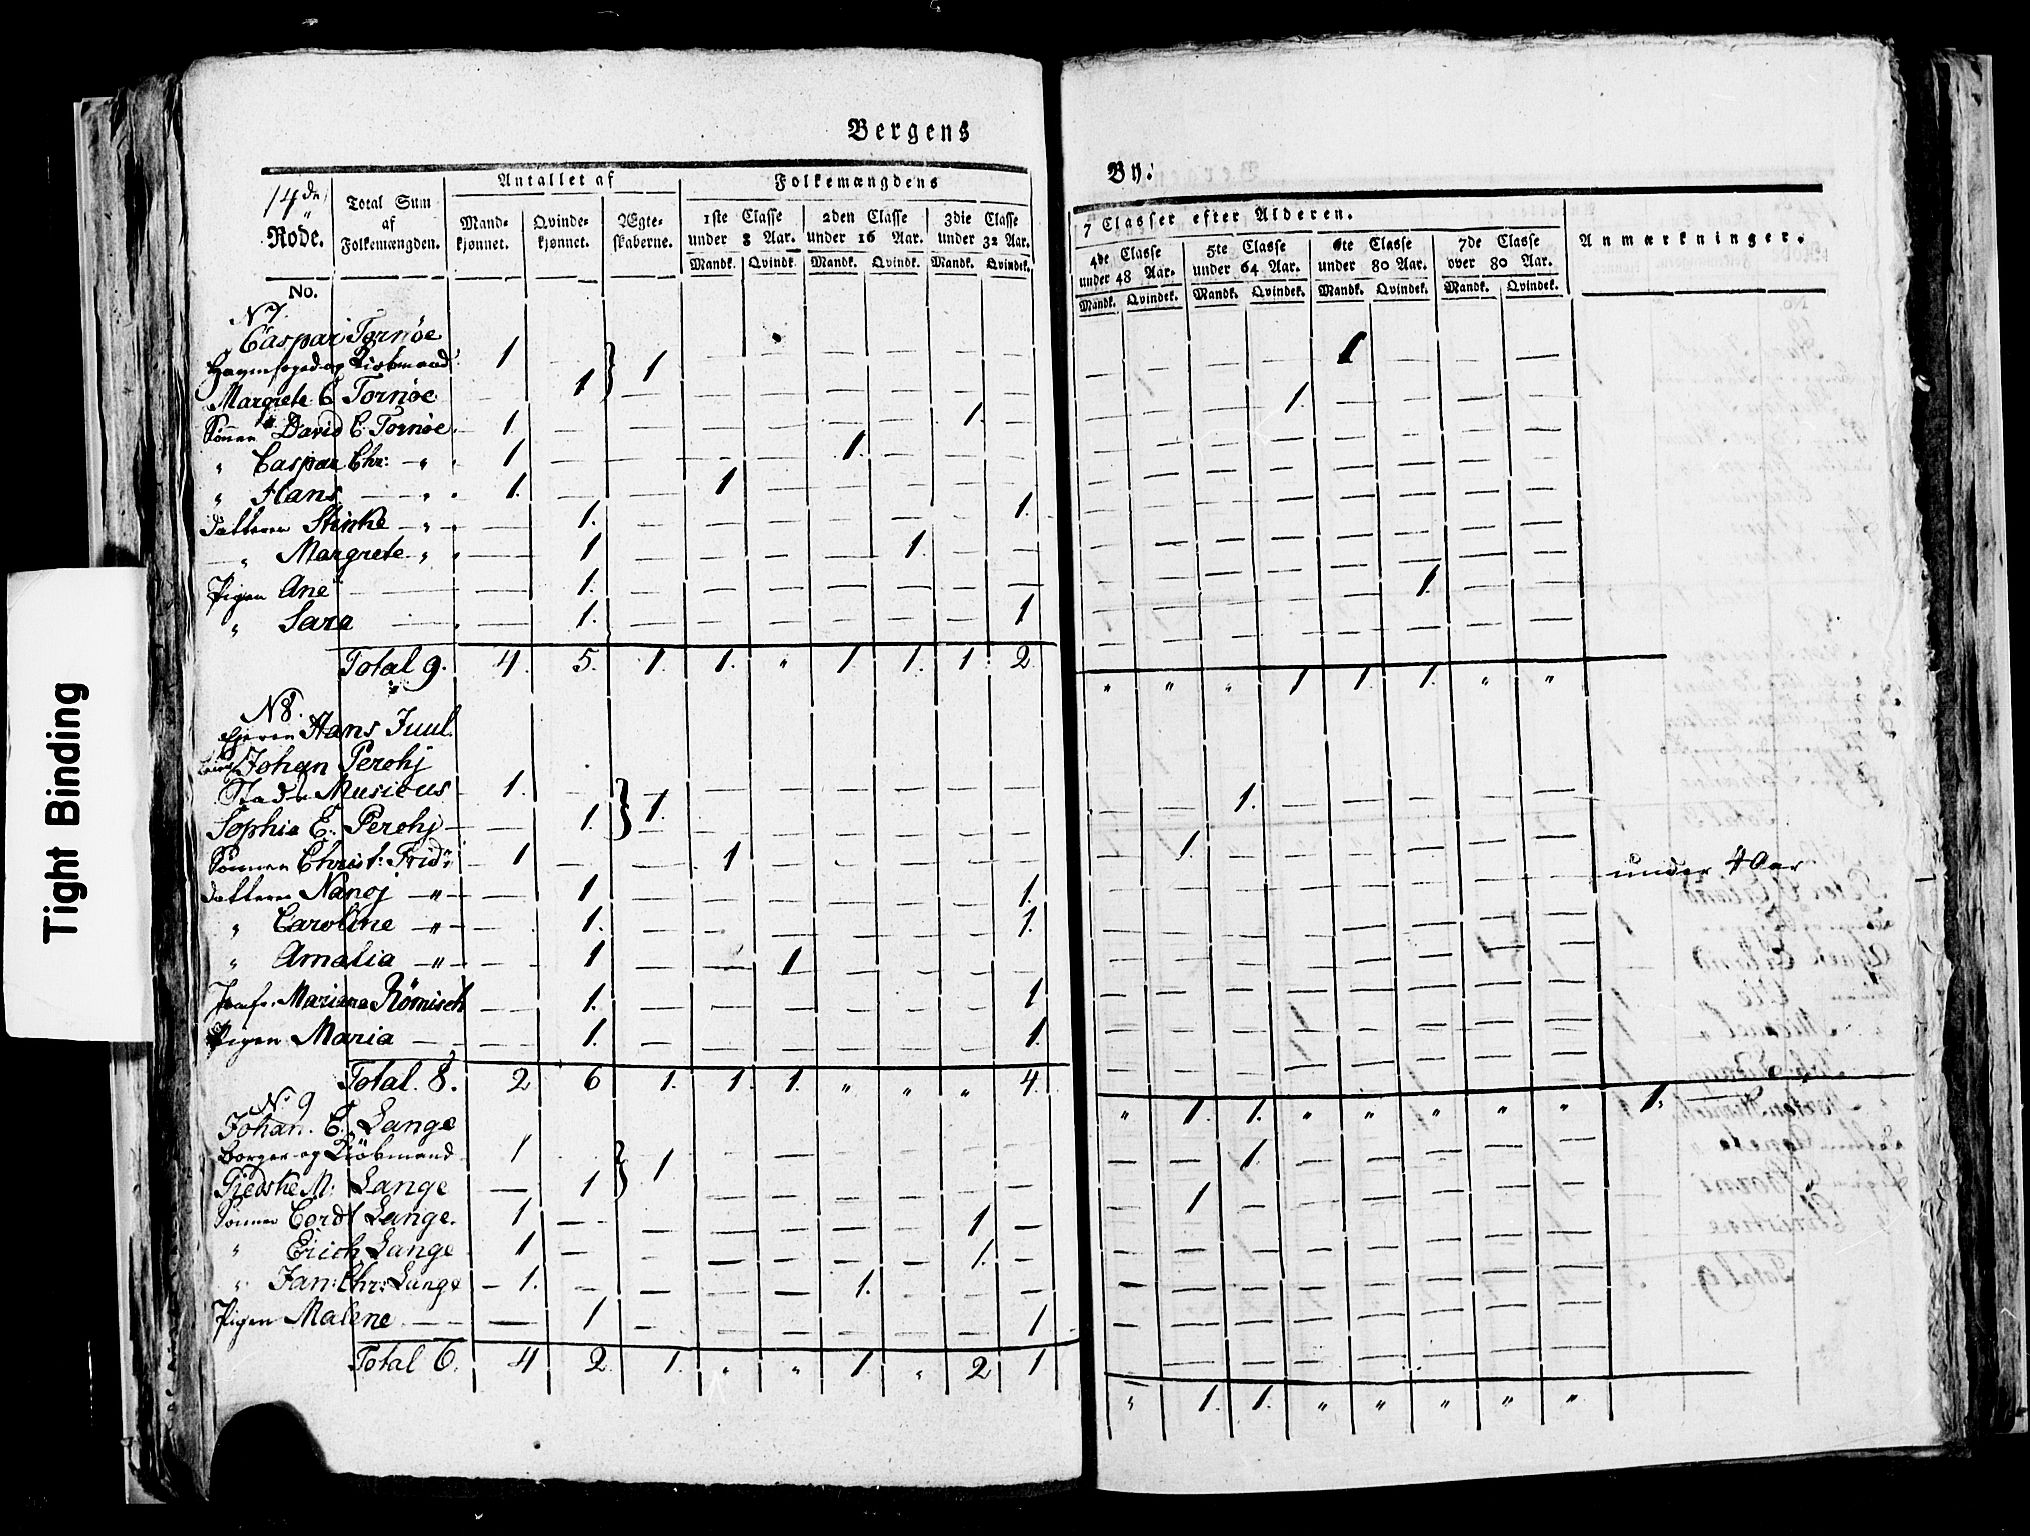 Bergens
By:
14de Rode.
Total Sum af Folkemængden.
Antallet af
Mandkjønnet.
Qvindekjønnet.
Ægteskaberne.
Folkemængdens
1ste Classe under 8 Aar.
2den Classe under 16 Aar.
3die Classe under 32 Aar.
Mandk. Qvindk. Mandk. Qvindk. Mandk. Qvindek.
7 Classer efter Alderen.
4de Classe under 48 Aar.
5te Classe under 64 Aar.
6te Classe under 80 Aar.
7de Classe over 80 Aar.
Mandk. Qvindek. Mandk. Qvindek. Mandk. Qvindek. Mandk. Qvindek.
Anmærkninger.
No.
N 7.
Caspar Tornöe
Havnefoged og Kiøbmand 1 — } 1 — — — — — — — — — — 1 — — —
Margrete C Tornöe — 1 — — — — — — — — — 1 — — — —
Sönnen David C. Tornöe 1. — — — — — — 1. —
" Caspar Chr: — " 1 — — — — 1. — — —
" Hans — " 1. — — 1 — — — — —
Datteren Stinke — " — 1. — — — — — — 1.
— " Margrete " — 1 — — — — 1. — —
Pigen Ane — 1. — — — — — — — — — — — — 1. — —
" Sara — 1. — — — — — — 1
Total 9. 4. 5. 1. 1. " 1. 1. 1. 2. " " " 1 1 1. " "
N 8.
Ejeren Hans Juul.
Johan Perchj
Stads Musicus 1. — } 1. — — — — — — — — 1. — — — — —
Sophie E. Perchj — 1. — — — — — — — 1. — — — — — —
Sönnen Christ: Frid: 1 — — 1 — — — — — under 4 Aar
Datteren Nancj — " — 1 — — — — — — 1.
" Caroline — " — 1. — — — — — — 1.
" Amalia — " — 1 — — 1 — — — —
Jomfr. Mariane Römisch — 1. — — — — — — 1
Pigen Maria — 1. — — — — — — 1.
Total. 8. 2 6 1. 1. 1. " " " 4. " 1. 1. " " " " " 1.
N. 9
Johan. C. Lange
Borger og Kiöbmand 1 — } 1 — — — — — — — — 1. — — — — —
Gjedske M: Lange — 1 — — — — — — — 1 — — — — — —
Sönnen Cordt Lange. 1 — — — — — — 1 —
" Erich Lange 1 — — — — — — 1. —
" Jan: Chr: Lange 1. — — — — 1. — — —
Pigen Malene — 1 — — — — — — 1
Total 6. 4 2. 1. " " 1. " 2 1 " 1. 1. " " " " "
Tight Binding